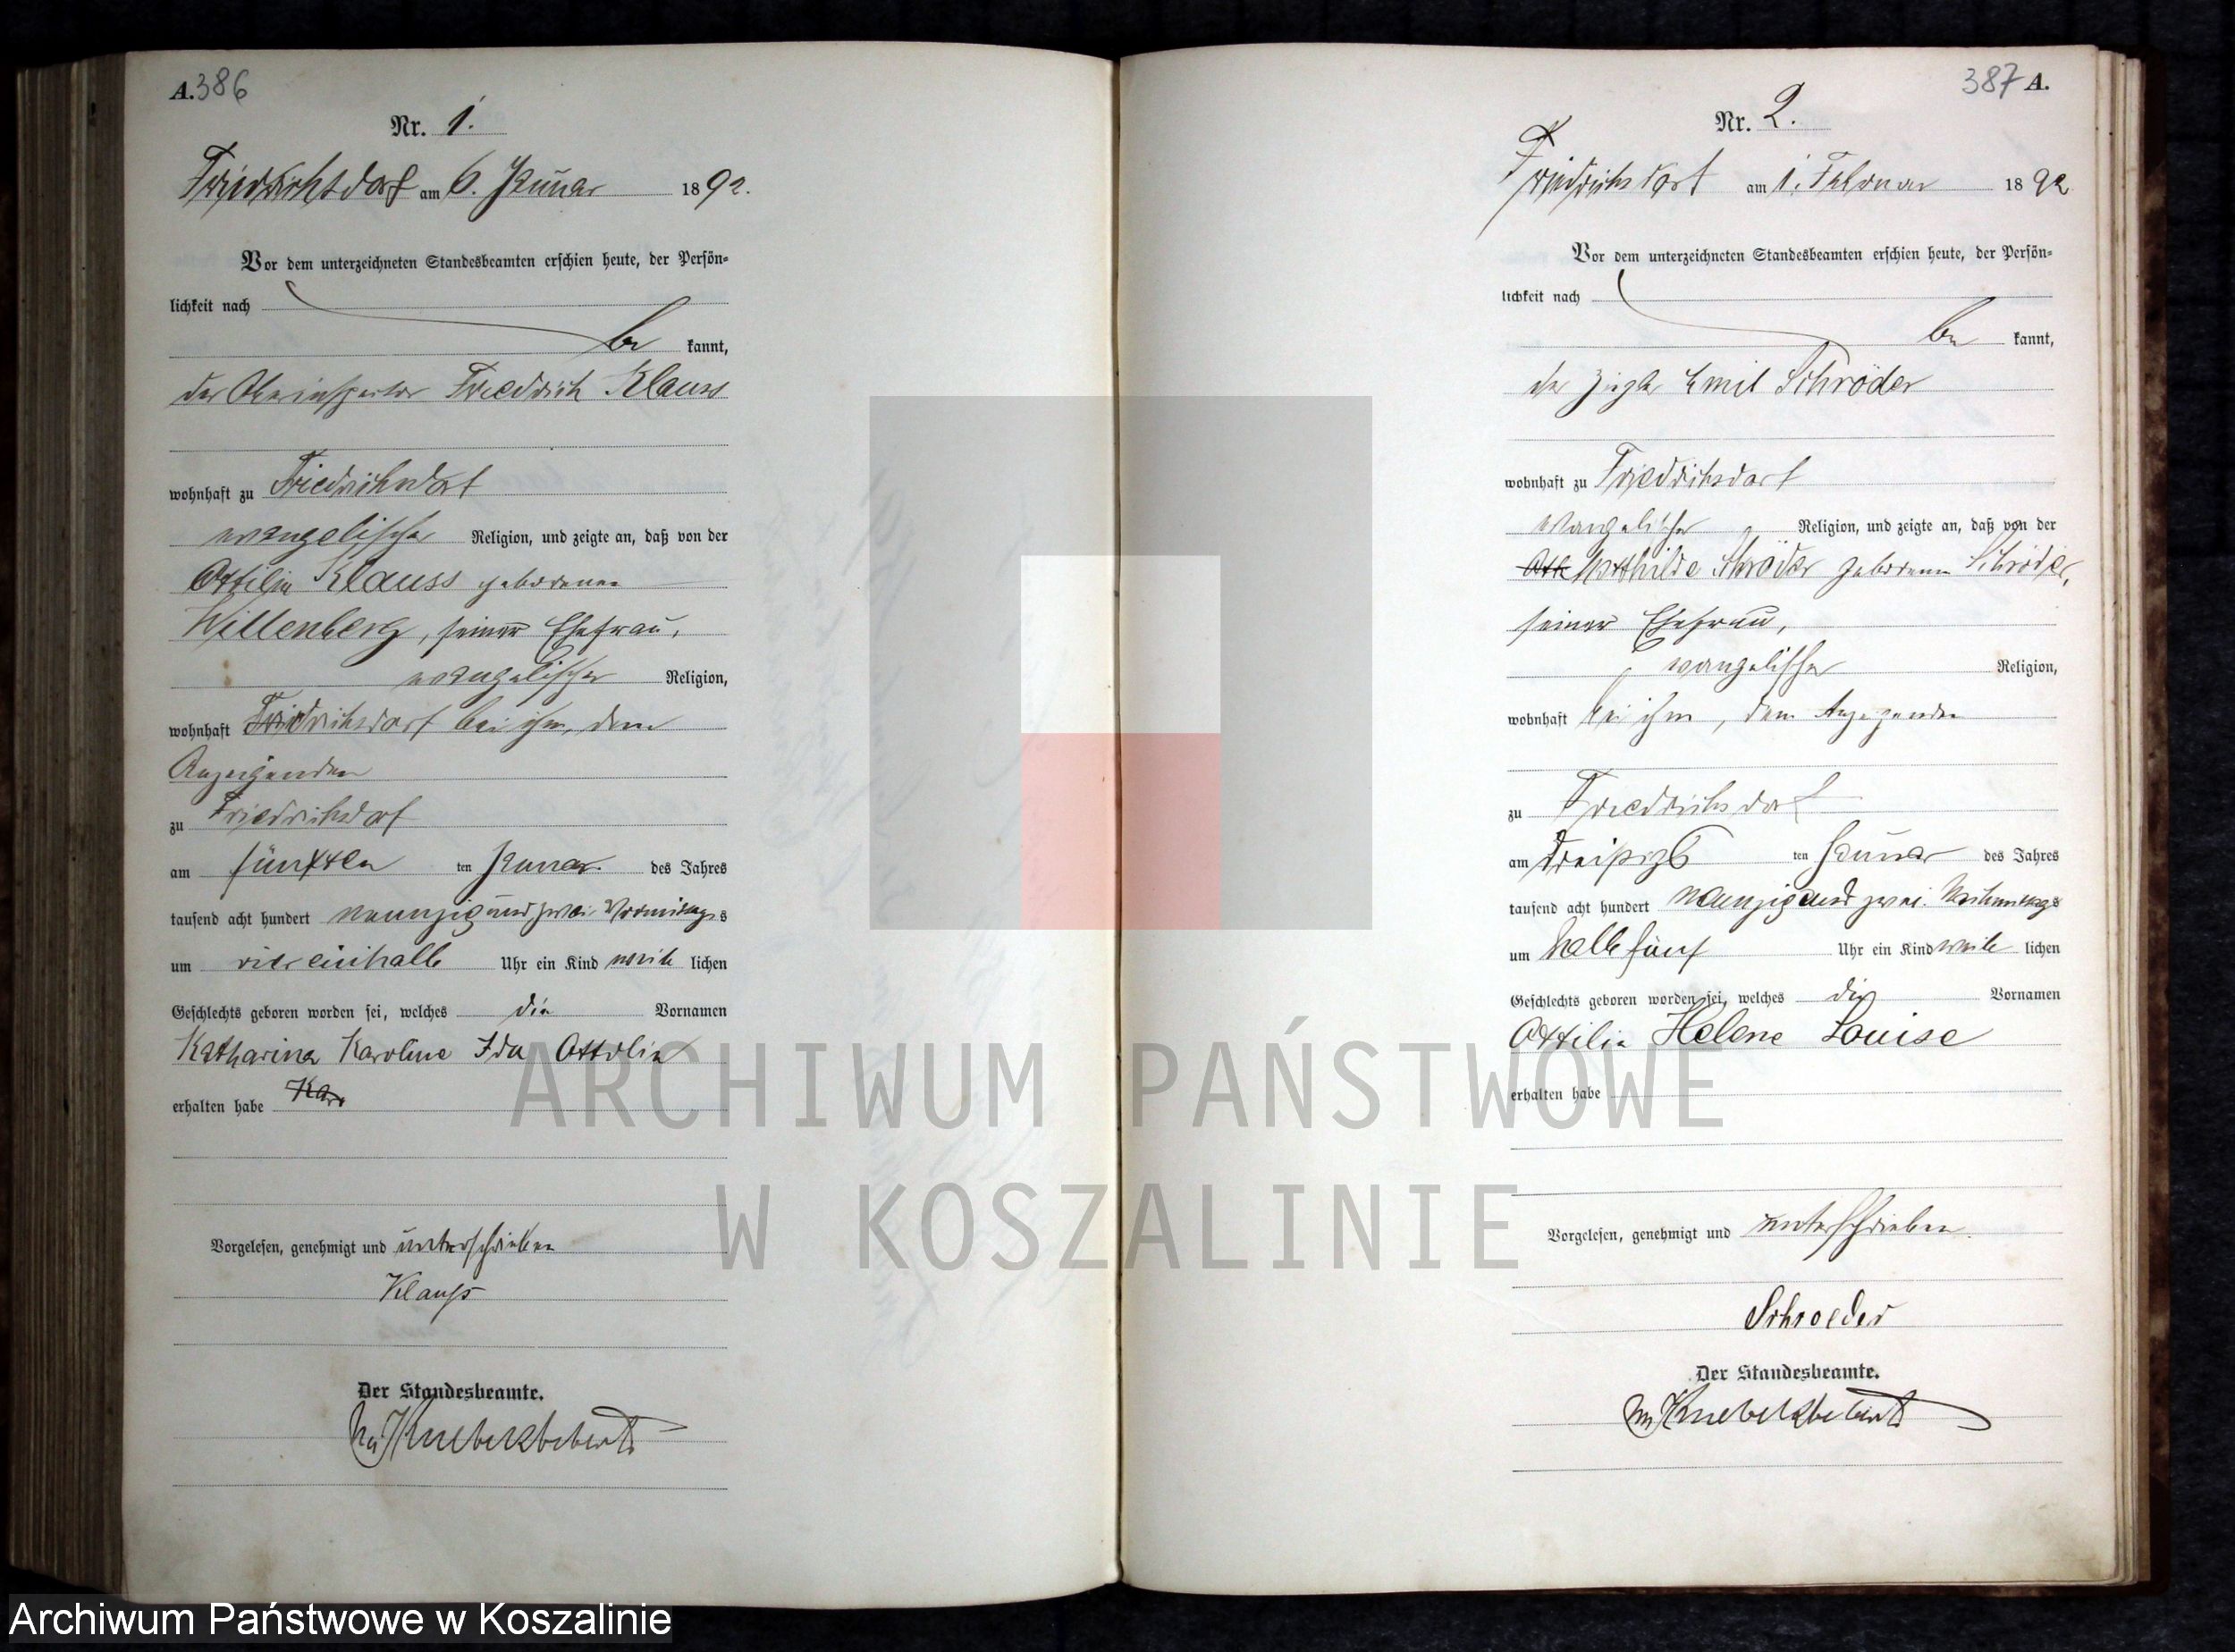 A. 386
Nr. 1.
Friedrichsdorf am 6. Januar 1892.
Vor dem unterzeichneten Standesbeamten erschien heute, der Persön-
lichkeit nach
be kannt,
der Oberinspector Friedrich Klauss
wohnhaft zu Friedrichsdorf
evangelischer Religion, und zeigte an, daß von der
Ottilie Klauss geborenen
Willenberg, seiner Ehefrau,
evangelischer Religion,
wohnhaft Friedrichsdorf bei ihm, dem
Anzeigenden
zu Friedrichsdorf
am fünften ten Januar des Jahres
tausend acht hundert neunzig und zwei Vormittags
um vier einhalb Uhr ein Kind weib lichen
Geschlechts geboren worden sei, welches die Vornamen
Katharina Karoline Ida Ottilie
erhalten habe Kar
Vorgelesen, genehmigt und unterschrieben
Klauss
Der Standesbeamte.
387 A.
Nr. 2.
Friedrichsdorf am 1. Februar 1892
Vor dem unterzeichneten Standesbeamten erschien heute, der Persön-
lichkeit nach
be kannt,
der Ziegler Emil Schröder
wohnhaft zu Friedrichsdorf
evangelischer Religion, und zeigte an, daß von der
Ott Mathilde Schröder geborenen Schröder,
seiner Ehefrau,
evangelischer Religion,
wohnhaft bei ihm, dem Anzeigenden
zu Friedrichsdorf
am dreißig ten Januar des Jahres
tausend acht hundert neunzig und zwei Nachmittags
um halb fünf Uhr ein Kind weib lichen
Geschlechts geboren worden sei, welches die Vornamen
Ottilie Helene Louise
erhalten habe
Vorgelesen, genehmigt und unterschrieben.
Schroeder
Der Standesbeamte.
ARCHIWUM PAŃSTWOWE
W KOSZALINIE
Archiwum Państwowe w Koszalinie